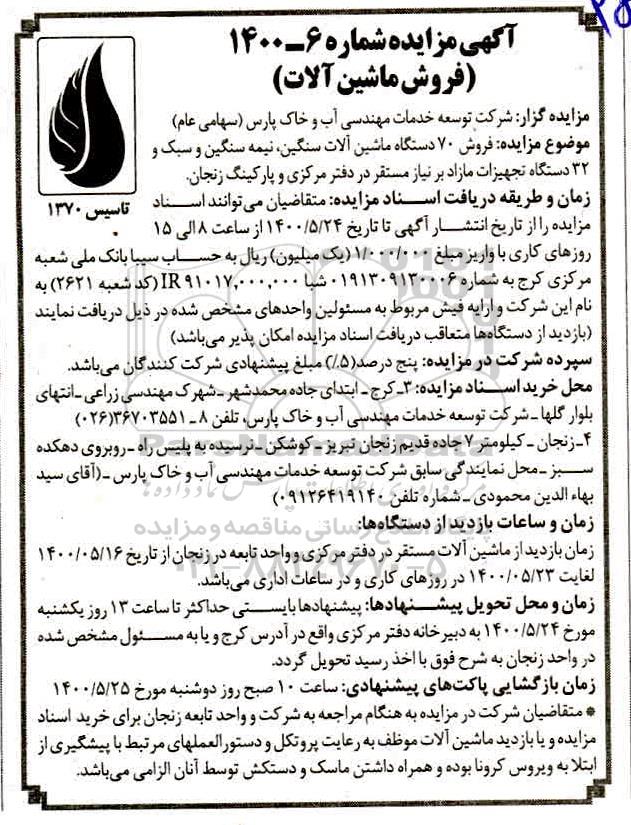 آگهی مزایده شماره ۶-۱۴۰۰
(فروش ماشین آلات)
تاسیس ۱۳۷۰
مزایده گزار: شرکت توسعه خدمات مهندسی آب و خاک پارس (سهامی عام)
موضوع مزایده: فروش ۷۰ دستگاه ماشین آلات سنگین، نیمه سنگین و سبک و
۳۲ دستگاه تجهیزات مازاد بر نیاز مستقر در دفتر مرکزی و پارکینگ زنجان.
زمان و طریقه دریافت اسناد مزایده: متقاضیان می‌توانند اسناد
مزایده را از تاریخ انتشار آگهی تا تاریخ ۱۴۰۰/۵/۲۴ از ساعت ۸ الی ۱۵
روزهای کاری با واریز مبلغ ۱/۰۰۰/۰۰۰ (یک میلیون) ریال به حساب سیبا بانک ملی شعبه
مرکزی کرج به شماره ۰۱۹۱۳۰۹۱۳۰۰۰۶ شبا IR ۹۱۰۱۷,۰۰۰,۰۰۰ (کد شعبه ۲۶۲۱) به
نام این شرکت و ارایه فیش مربوط به مسئولین واحدهای مشخص شده در ذیل دریافت نمایند
(بازدید از دستگاه‌ها متعاقب دریافت اسناد مزایده امکان پذیر می‌باشد)
سپرده شرکت در مزایده: پنج درصد(۵٪) مبلغ پیشنهادی شرکت کنندگان می‌باشد.
محل خرید اسناد مزایده: ۳-کرج- ابتدای جاده محمدشهر -شهرک مهندسی زراعی-انتهای
بلوار گلها -شرکت توسعه خدمات مهندسی آب و خاک پارس، تلفن ۸-۳۶۷۰۳۵۵۱(۰۲۶)
۴-زنجان - کیلومتر ۷ جاده قدیم زنجان تبریز - کوشکن -نرسیده به پلیس راه -روبروی دهکده
سبز -محل نمایندگی سابق شرکت توسعه خدمات مهندسی آب و خاک پارس -(آقای سید
بهاء الدین محمودی -شماره تلفن ۰۹۱۲۶۴۱۹۱۴۰)
زمان و ساعات بازدید از دستگاه‌ها:
زمان بازدید از ماشین آلات مستقر در دفتر مرکزی و واحد تابعه در زنجان از تاریخ ۱۴۰۰/۰۵/۱۶
لغایت ۱۴۰۰/۰۵/۲۳ در روزهای کاری و در ساعات اداری می‌باشد.
زمان و محل تحویل پیشنهادها: پیشنهادها بایستی حداکثر تا ساعت ۱۳ روز یکشنبه
مورخ ۱۴۰۰/۵/۲۴ به دبیرخانه دفتر مرکزی واقع در آدرس کرج و یا به مسئول مشخص شده
در واحد زنجان به شرح فوق با اخذ رسید تحویل گردد.
زمان بازگشایی پاکت‌های پیشنهادی: ساعت ۱۰ صبح روز دوشنبه مورخ ۱۴۰۰/۵/۲۵
* متقاضیان شرکت در مزایده به هنگام مراجعه به شرکت و واحد تابعه زنجان برای خرید اسناد
مزایده و یا بازدید ماشین آلات موظف به رعایت پروتکل و دستورالعملهای مرتبط با پیشگیری از
ابتلا به ویروس کرونا بوده و همراه داشتن ماسک و دستکش توسط آنان الزامی می‌باشد.